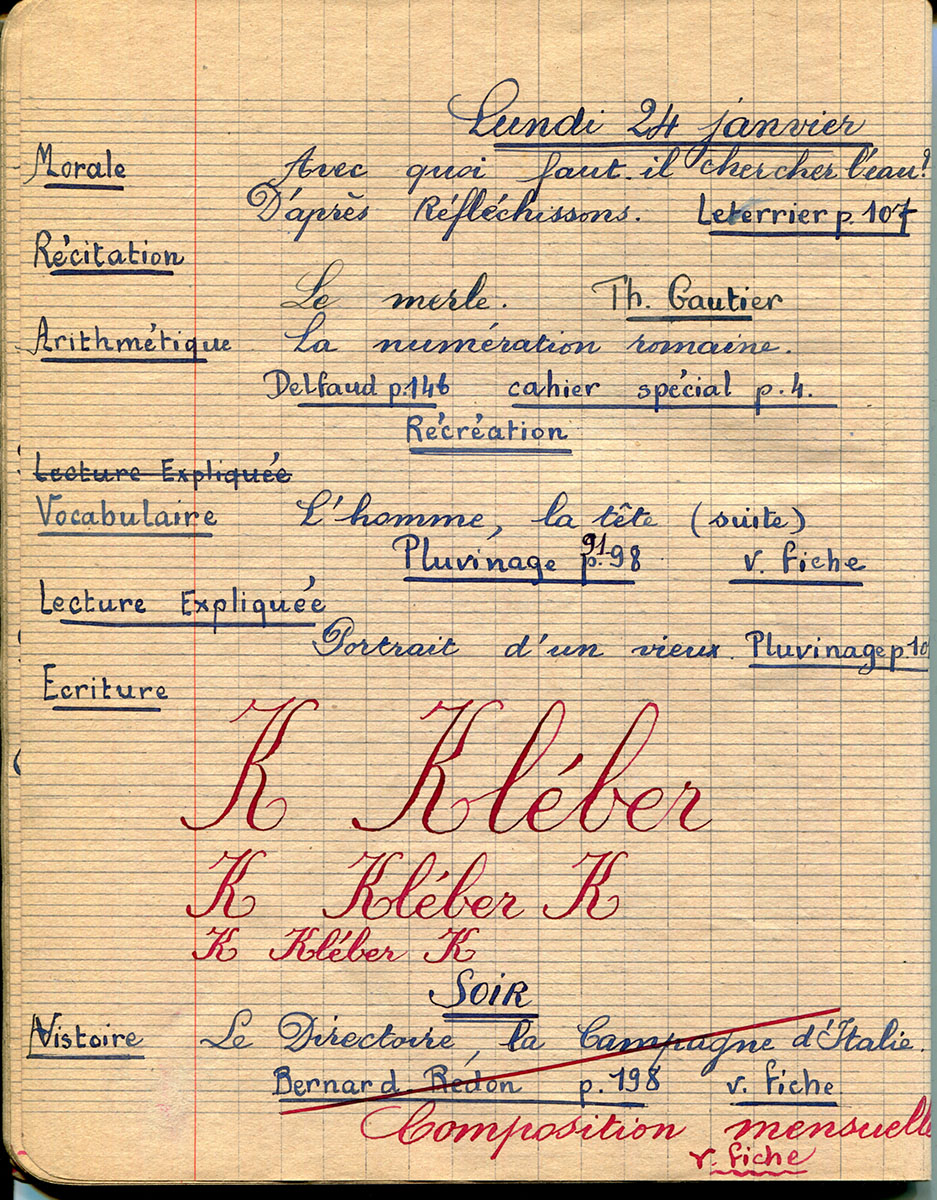 Lundi 24 janvier
Morale Avec quoi faut-il chercher l'eau?
D'après Réfléchissons. Leterrier p. 107
Récitation
Le merle. Th. Gautier
Arithmétique La numération romaine.
Delfaud p. 146 cahier spécial p. 4.
Récréation
Lecture Expliquée
Vocabulaire L'homme, la tête (suite)
91
Pluvinage p. 98 v. fiche
Lecture Expliquée
Portrait d'un vieux. Pluvinage p 10
Ecriture
K Kléber
K Kléber K
K Kléber K
SOIR
Histoire Le Directoire, la Campagne d'Italie.
Bernard Redon p. 198 v. fiche
Composition mensuelle
v. fiche